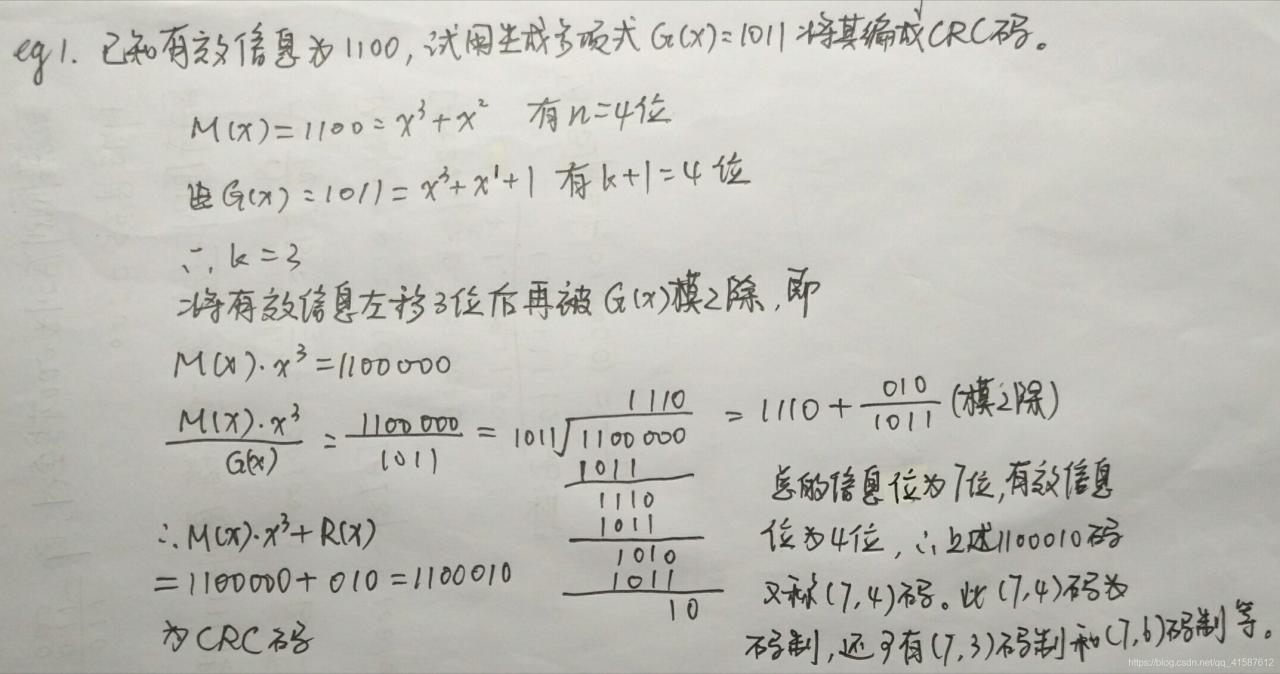 eg1. 已知有效信息为1100,试用生成多项式G(x)=1011将其编成CRC码。
M(x)=1100=x³+x² 有n=4位
由G(x)=1011=x³+x¹+1 有k+1=4位
∴k=3
将有效信息左移3位后再被G(x)模2除,即
M(x)·x³=1100000
M(x)·x³/G(x) = 1100000/1011 = 1011√1100000 = 1110+010/1011 (模2除)
1110
1011
1110
1011
1010
1011
10
∴M(x)·x³+R(x)
=1100000+010=1100010
为CRC码
总的信息位为7位,有效信息
位为4位,∴上述1100010码
又称(7,4)码。此(7,4)码为
码制,还可有(7,3)码制和(7,6)码制等。
https://blog.csdn.net/qq_41587612